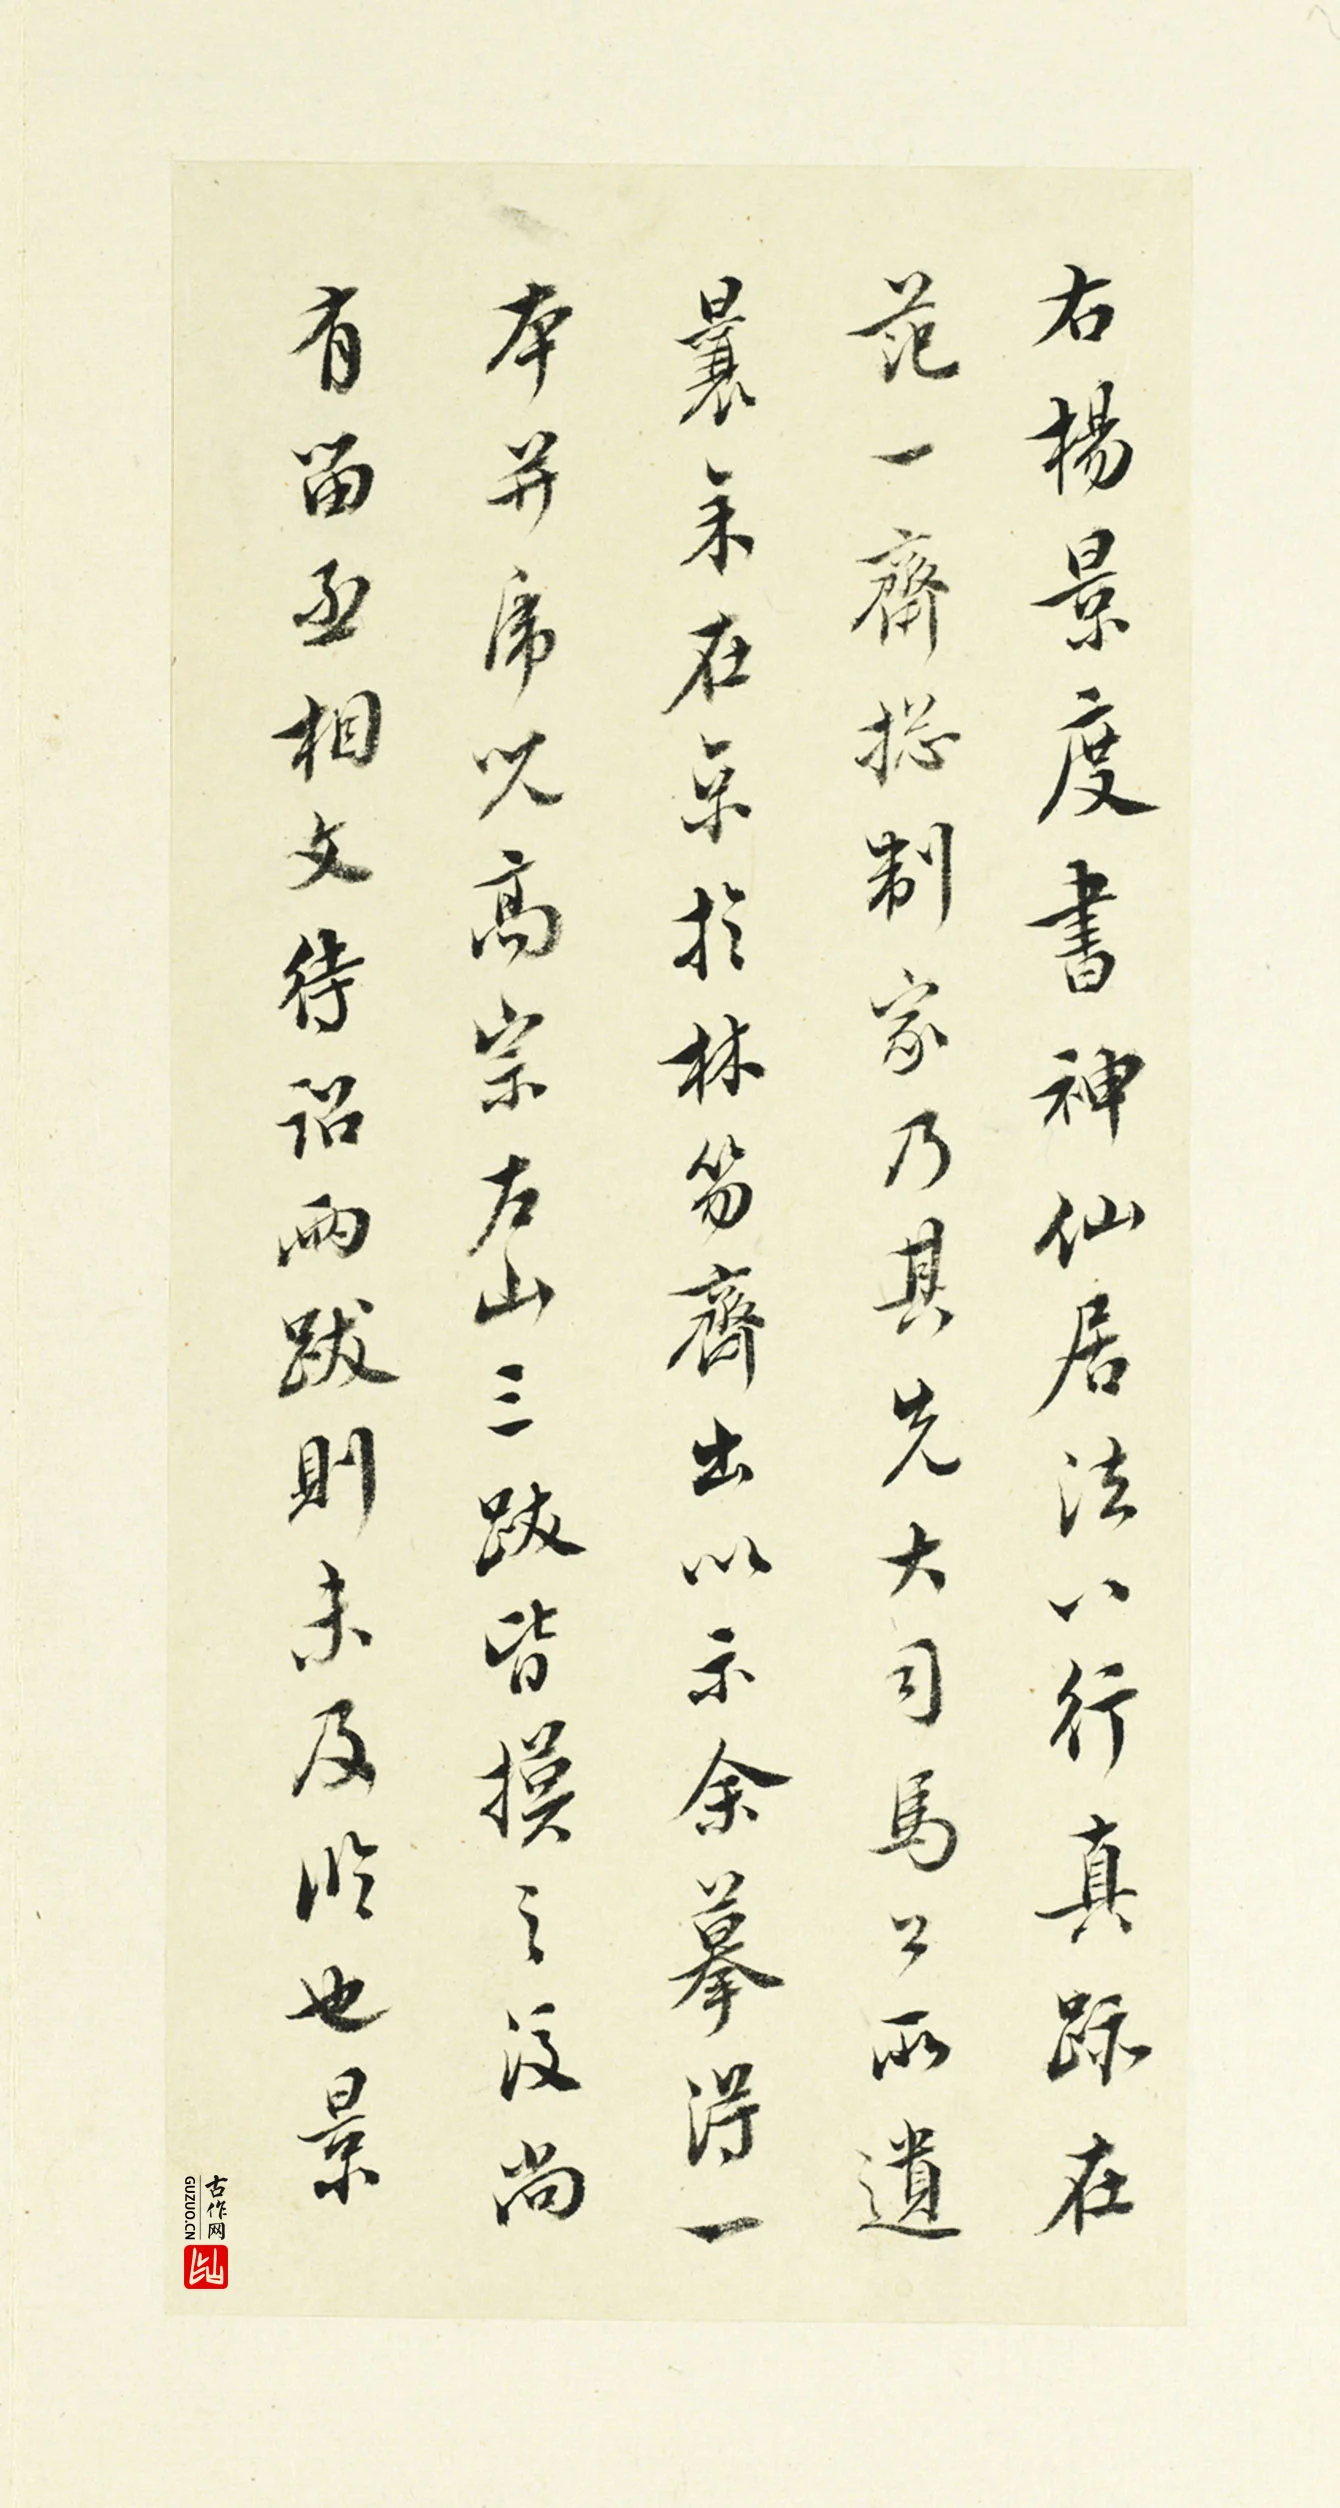 右楊景度書神仙居法八行真跡在
范一齋揔制家乃其先大司馬公所遺
曩年在京於林笏齋出以示余摹得一
本并虎兒高宗左山三跋皆摸之後尚
有留丞相文待詔兩跋則未及臨也景
古作网
GUZUO.CN